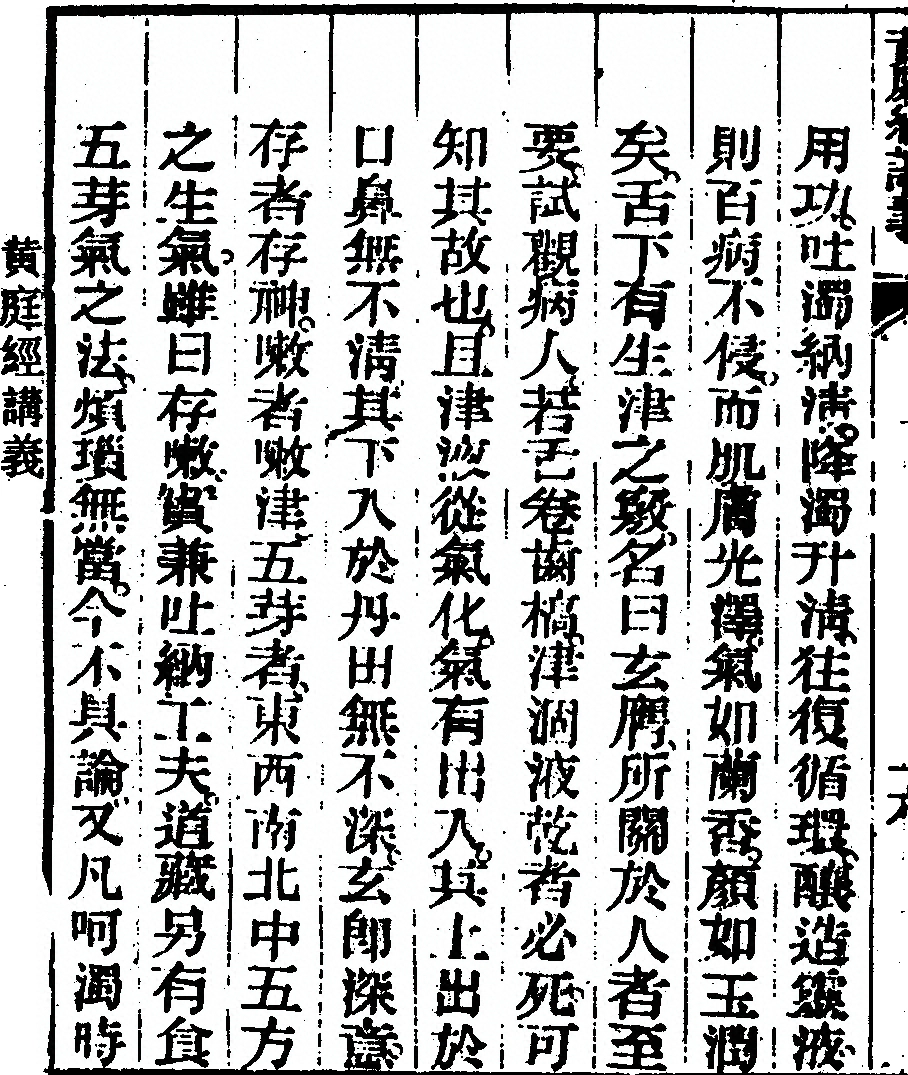 黃庭經講義
用功吐濁納清降濁升清往復循環釀造靈液
則百病不侵而肌膚光澤氣如蘭香顏如玉潤
矣舌下有生津之竅名曰玄膺所關於人者至
要試觀病人若舌卷齒槁津涸液乾者必死可
知其故也且津液從氣化氣有出入其上出於
口鼻無不清其下入於丹田無不深玄卽深意
存者存神嗽者嗽津五芽者東西南北中五方
之生氣雖曰存嗽實兼吐納工夫道藏另有食
五芽氣之法煩瑣無當今不具論又凡呵濁時
黃庭經講義